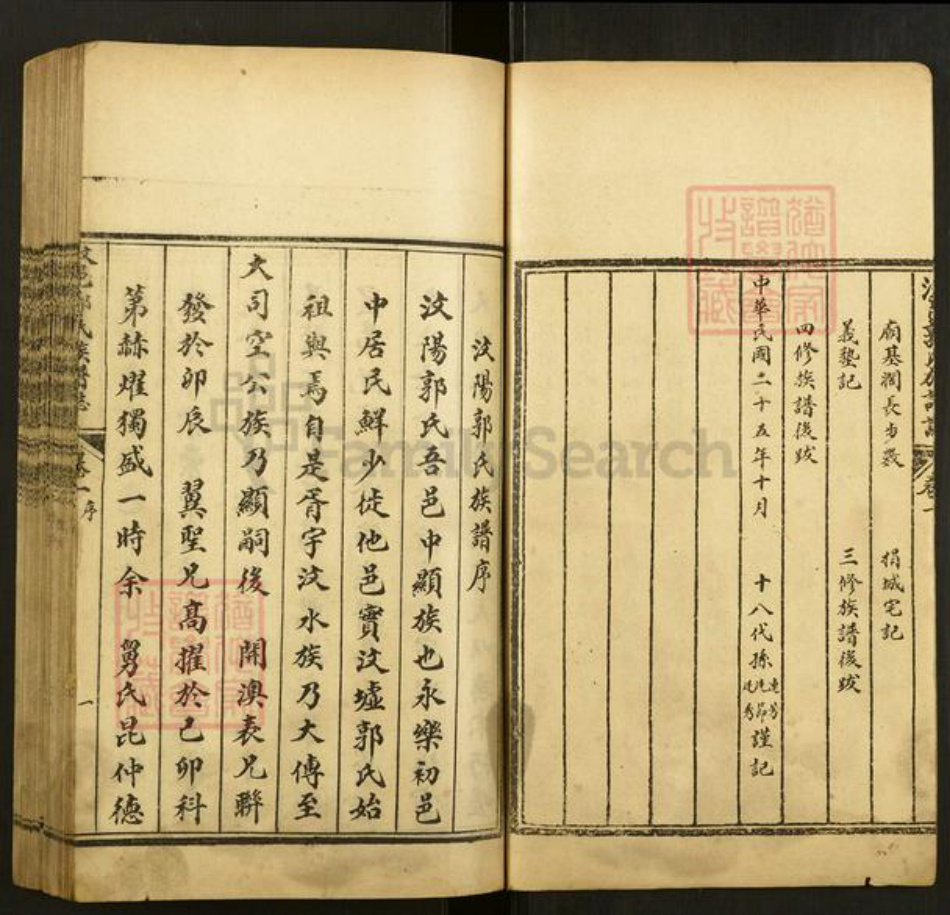 廟基濶長步數 捐城宅記
義塾記 三修族譜後跋
四修族譜後跋
中華民國二十五年十月 十八代孫 謹記
汶陽郭氏族譜序
汶陽郭氏吾邑中顯族也永樂初邑
中居民鮮少徙他邑實汶墟郭氏始
祖與焉自是胥宇汶水族乃大傳至
大司空公族乃顯嗣後 開澳表兄聯
發於卯辰 翼聖兄高擢於己卯科
第赫燿獨盛一時余 舅氏昆仲德
郭氏族譜志
卷一 序
一
FamilySearch